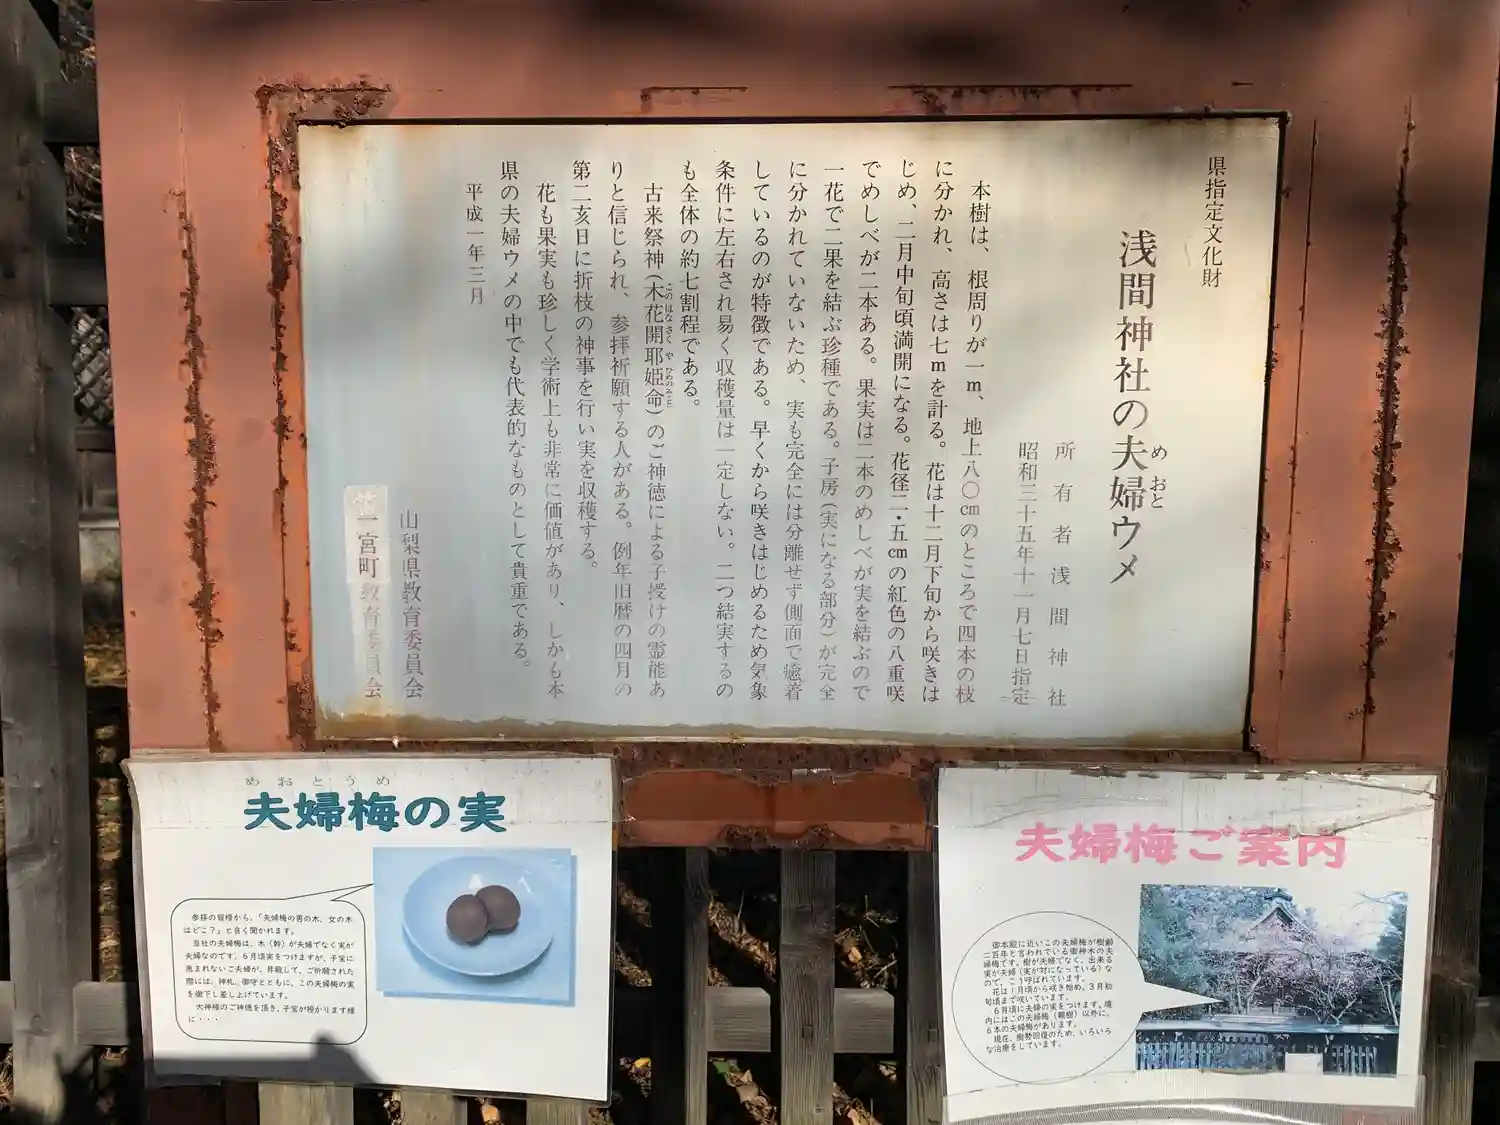 県指定文化財
浅間神社の夫婦ウメ
めおと
所有者浅間神社
昭和三十五年十一月七日指定
本樹は、根周りが一m、地上八〇cmのところで四本の枝
に分かれ、高さは七mを計る。花は十二月下旬から咲きは
じめ、二月中旬頃満開になる。花径二・五cmの紅色の八重咲
でめしべが二本ある。果実は二本のめしべが実を結ぶので
一花で二果を結ぶ珍種である。子房(実になる部分)が完全
に分かれていないため、実も完全には分離せず側面で癒着
しているのが特徴である。早くから咲きはじめるため気象
条件に左右され易く収穫量は一定しない。二つ結実するの
も全体の約七割程である。
古来祭神(木花開耶姫命)のご神徳による子授けの霊能あ
このはなさくやひめのみこと
りと信じられ、参拝祈願する人がある。例年旧暦の四月の
第二亥日に折枝の神事を行い実を収穫する。
花も果実も珍しく学術上も非常に価値があり、しかも本
県の夫婦ウメの中でも代表的なものとして貴重である。
平成一年三月
山梨県教育委員会
一宮町教育委員会
めおとうめ
夫婦梅の実
参拝の皆様から、「夫婦梅の男の木、女の木
はどこ?」と良く聞かれます。
当社の夫婦梅は、木(幹)が夫婦でなく実が
夫婦なのです。6月頃実をつけますが、子宝に
恵まれないご夫婦が、昇殿して、ご祈願された
際には、神札、御守とともに、この夫婦梅の実
を徹下し差し上げています。
大神様のご神徳を頂き、子宝が授かります様
に・・・
夫婦梅ご案内
御本殿に近いこの夫婦梅が樹齢
二百年と言われている御神木の夫
婦梅です。樹が夫婦でなく、出来る
実が夫婦(実が対になっている)な
ので、こう呼ばれています。
花は1月頃から咲き始め、3月初
旬頃まで咲いています。
6月頃に夫婦の実をつけます。境
内にはこの夫婦梅(親樹)以外に、
6本の夫婦梅があります。
現在、樹勢回復のため、いろいろ
な治療をしています。